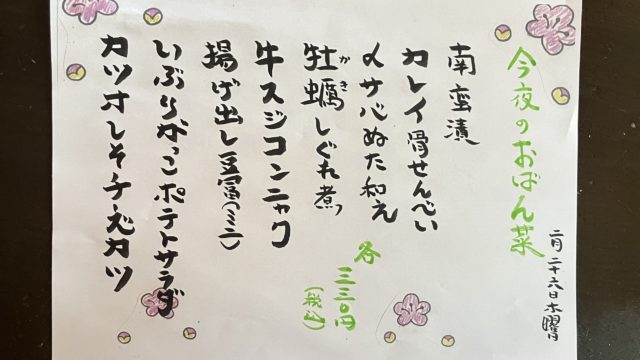 二月二十六日木曜日
今夜のおばん菜
南蛮漬
カレイ骨せんべい
〆サバぬた和え
牡蠣しぐれ煮
かき
牛スジコンニャク
揚げ出し豆富(ミニ)
いぶりがっこポテトサラダ
カツオしそチーズカツ
各三三〇円
(税込)